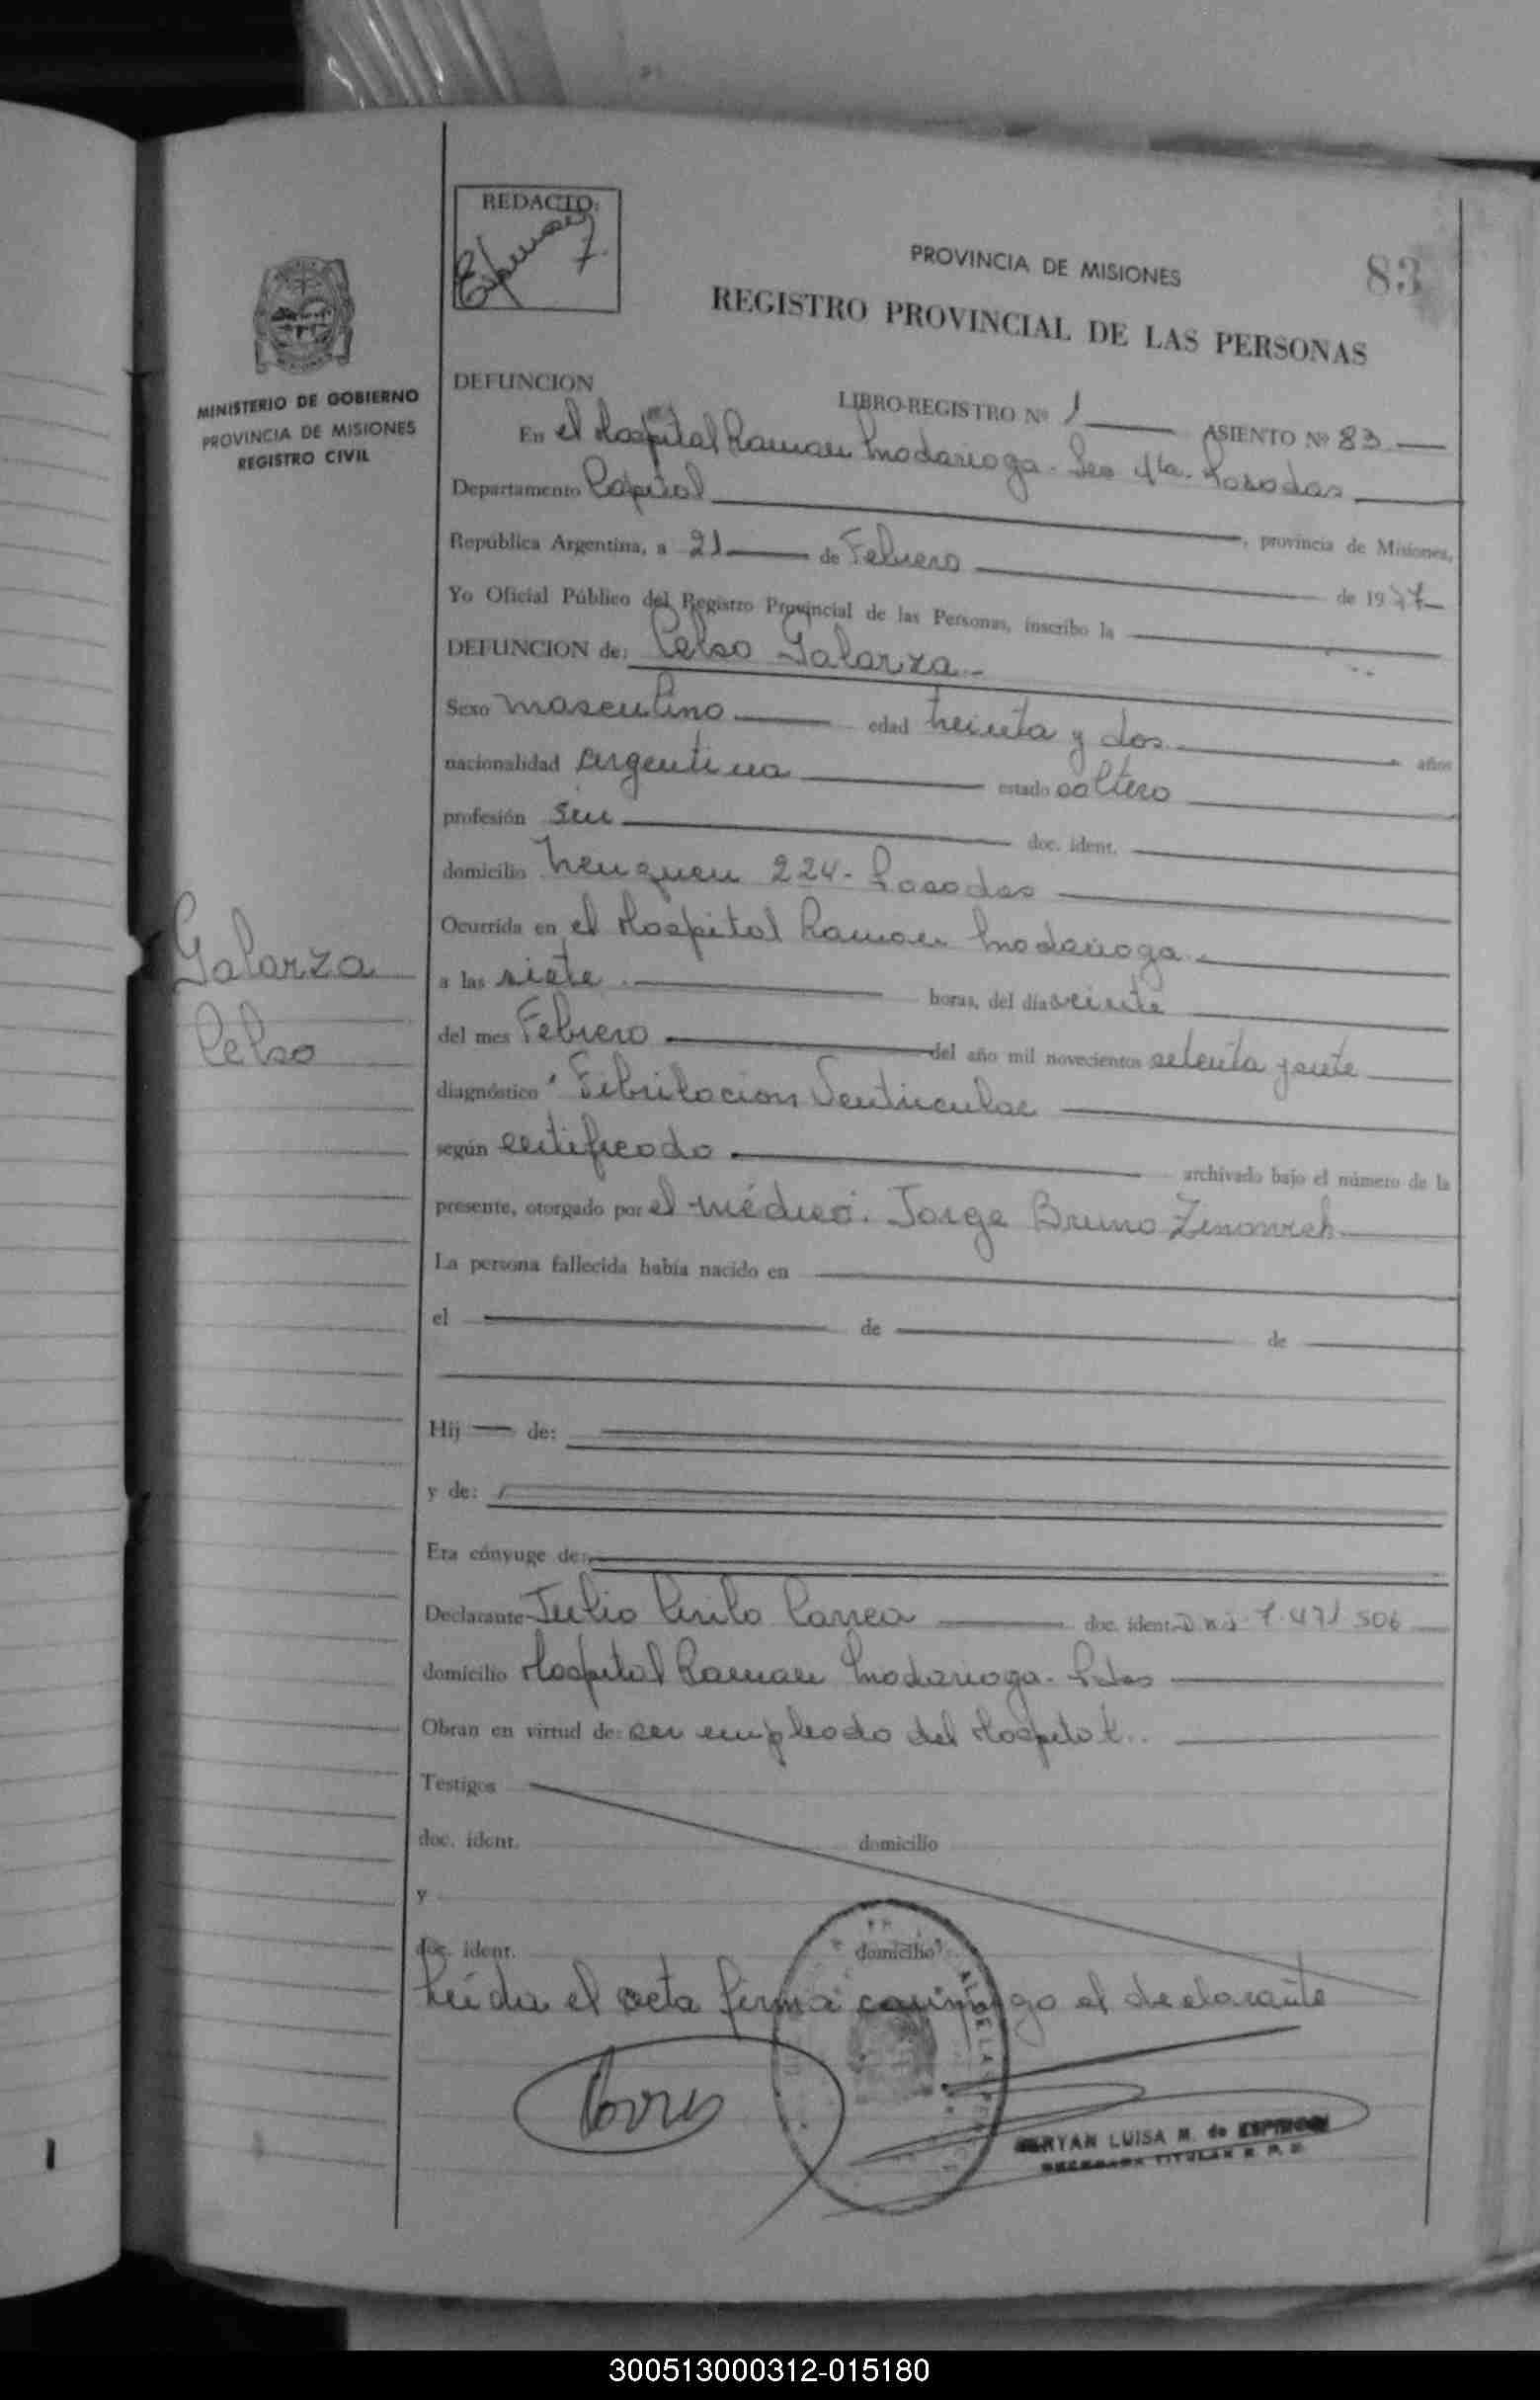 REDACTO:
PROVINCIA DE MISIONES
83
REGISTRO PROVINCIAL DE LAS PERSONAS
MINISTERIO DE GOBIERNO
PROVINCIA DE MISIONES
REGISTRO CIVIL
DEFUNCION
LIBRO-REGISTRO Nº 1 ASIENTO Nº 83
En el Hospital Ramon Madariaga - Sec 4ta. Posadas
Departamento Capital, provincia de Misiones,
República Argentina, a 21 de Febrero de 1977
Yo Oficial Público del Registro Provincial de las Personas, inscribo la
DEFUNCION de: Celso Galarza
Sexo masculino edad treinta y dos años
nacionalidad argentina estado soltero
profesión sin doc. ident.
domicilio Neuquen 224 - Posadas
Ocurrida en el Hospital Ramon Madariaga
Galarza
Celso
a las siete horas, del día veinte
del mes Febrero del año mil novecientos setenta y siete
diagnóstico Fibrilacion Ventricular
según certificado archivado bajo el número de la
presente, otorgado por el médico. Jorge Bruno
La persona fallecida había nacido en
el de de
Hij de:
y de:
Era cónyuge de:
Declarante Julio Cirilo Correa doc. ident. D n i 7.471 506
domicilio Hospital Ramon Madariaga - Pdas
Obran en virtud de: ser empleado del Hospital..
Testigos
doc. ident. domicilio
y
doc. ident. domicilio
Leida el acta firma conmigo el declarante
LUISA M. de
TITULAR R. P. P.
300513000312-015180